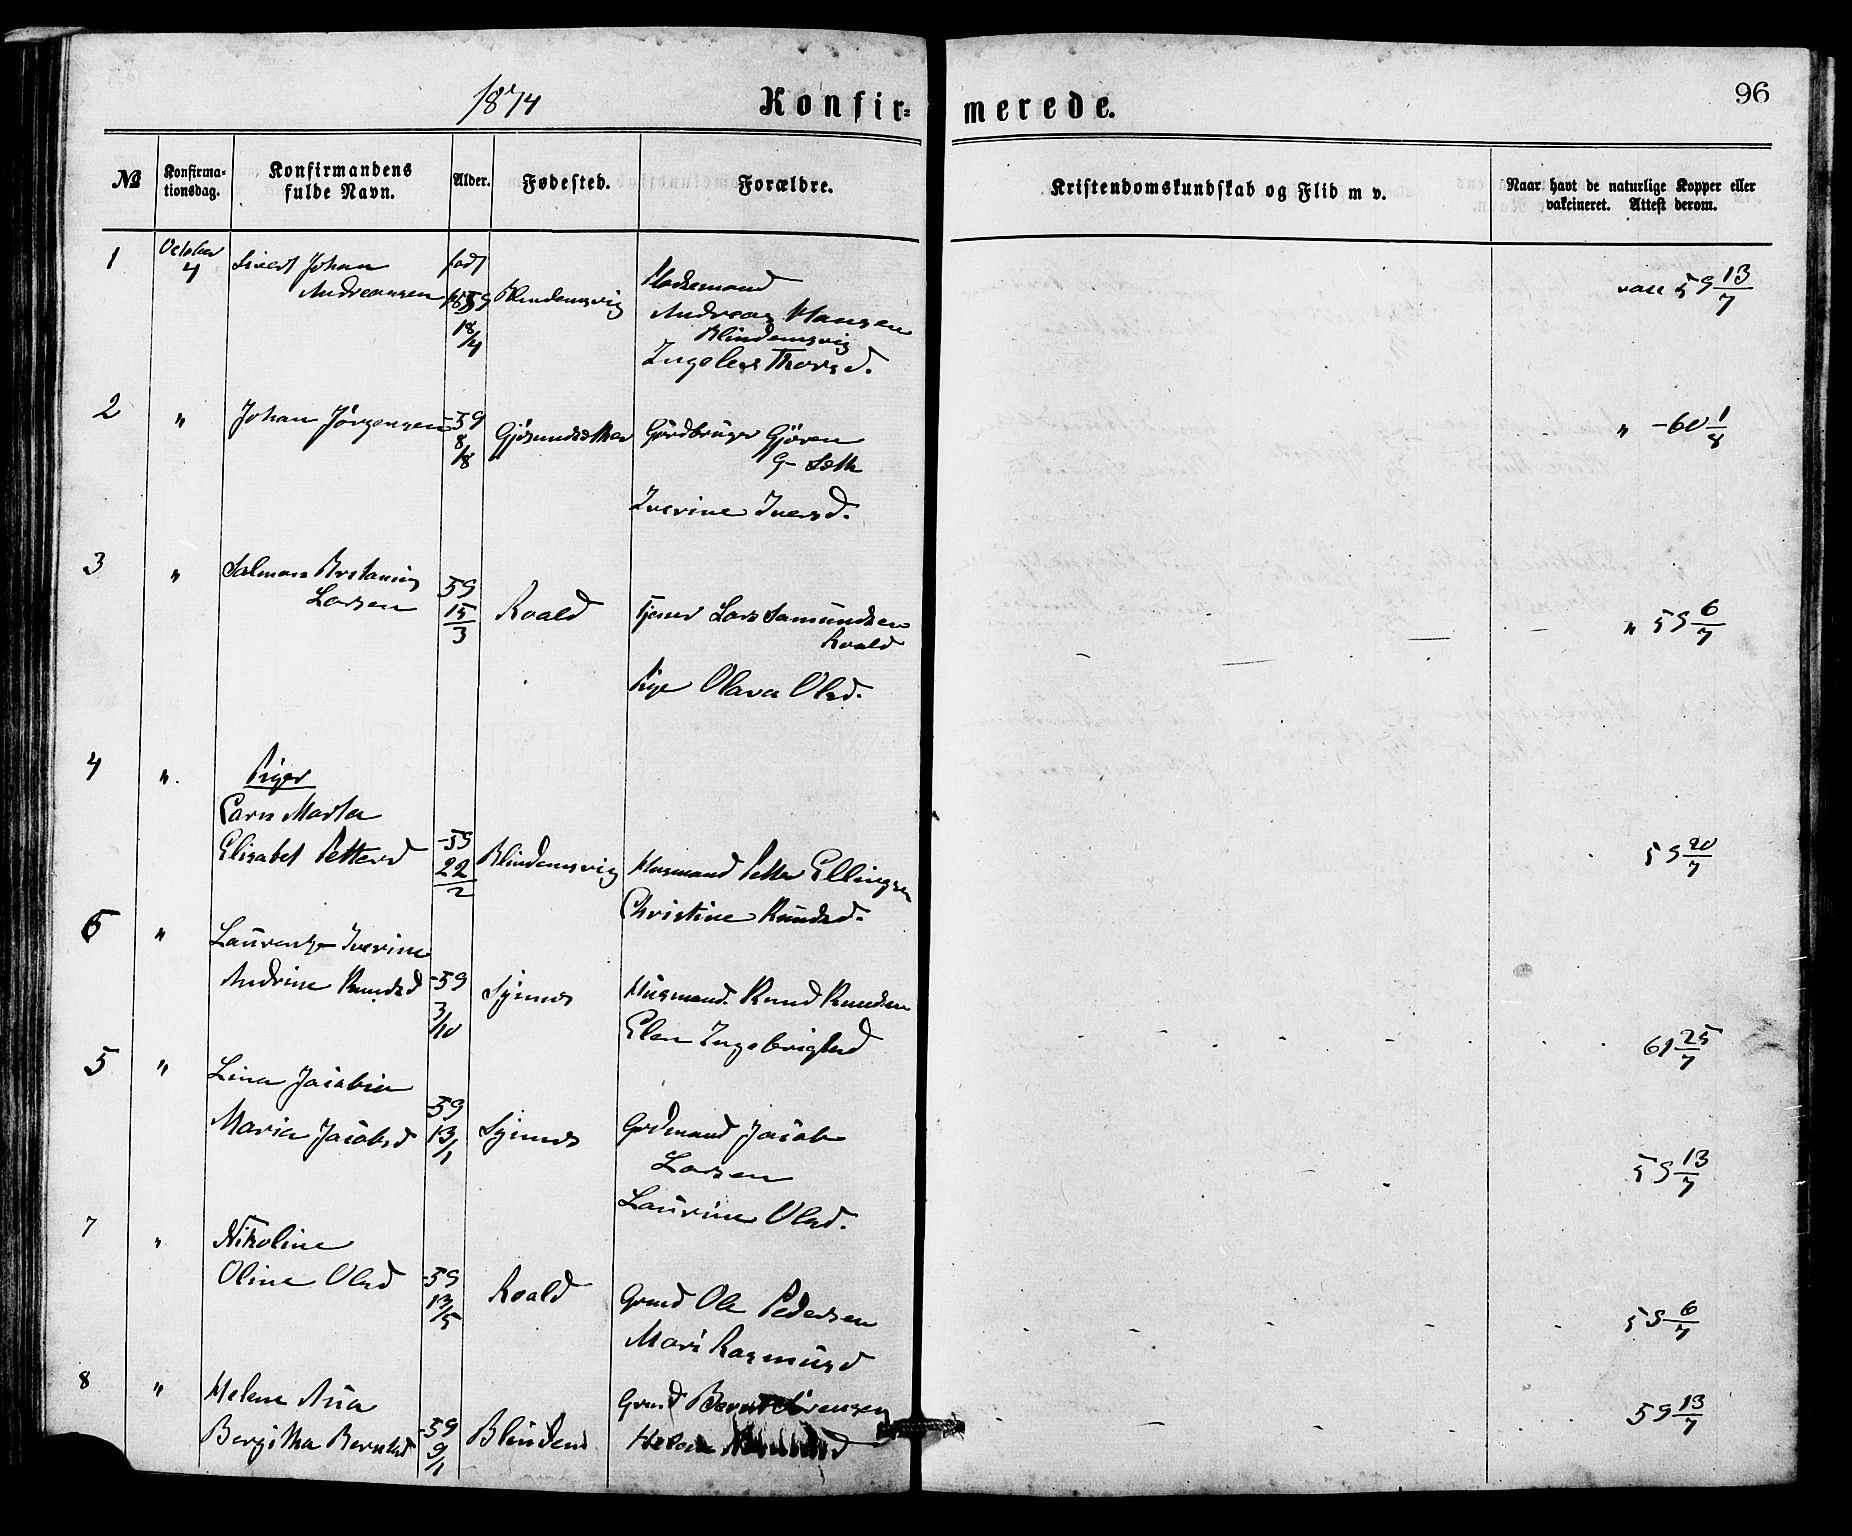 1874
Konfir=
merede.
96
№
Konfirma-
tionsdag.
Konfirmandens
fulde Navn.
Alder.
Fødested.
Forældre.
Kristendomskundskab og Flid m v.
Naar havt de naturlige Kopper eller
vakcineret. Attest derom.
1 October 4
Sivert Johan
Andreassen
født 1859 18/4
Blindemsvig
Andreas Hansen
Blindemsvig
vacc 59 13/7
2 "
Johan Jörgensen
-59 8/18
Gjøsundsæther
Gårdbruger Gjøren
G- Sæth
Iverine Iversd.
" -60 1/8
3 "
Larsen
59 15/3
Roald
Tjener Lars Samundsen
Roald
Pige Olava Olsd.
" 59 6/7
4 ".
Piger
Marta
Elisabet Pettersd
-59 22/2
Blindemsvig
Husmand Petter Ellingsen
Christine Knudsd.
59 20/7
6 "
Laurentze Iverine
Andrine Knudsd
-59 3/10
Synnes
Husmand. Knud Knudsen
Elen Ingebrigtsd
61 25/7
5 "
Lina Jacobia
Maria Jacobsd
-59 13/1
Synnes
Grdmand Jacob
Larsen
Laurine Olsd.
59 13/7
7 "
Nikoline
Oline Olsd
-59 13/5
Roald
Grmd Ole Pedersen
Mari Rasmusd
59 6/7
8 "
Helene Ana
Bergitha Berntsd
-59 9/1
Blindem
Grmd
59 13/7